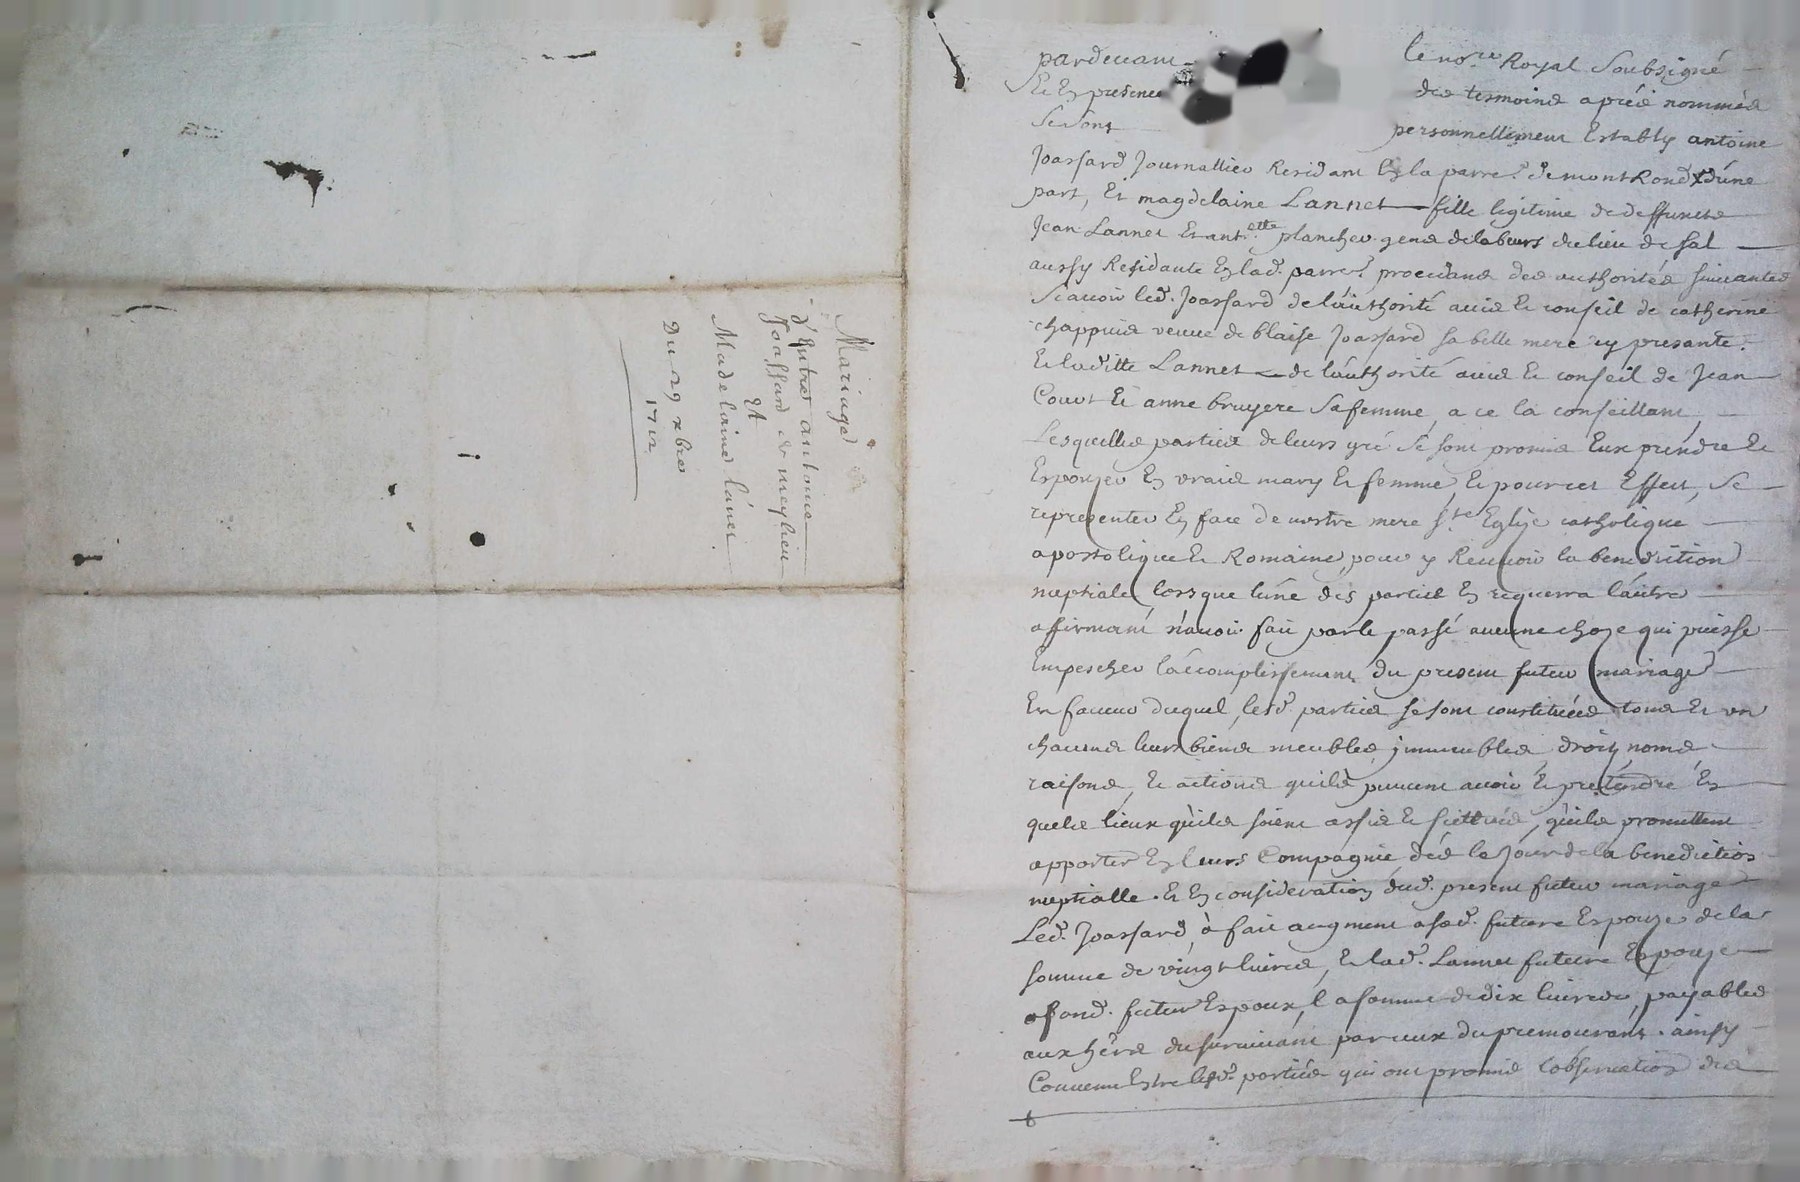 Mariage
d'Entre antoine
Joassard de meylieu
Et
Madelaine lánet
Du 29 xbre
1712
pardevant le no.re Royal Soubsigné
Et En presence des tesmoins aprés nommés
Se sont personnellement Estably antoine
Joassard Journallier Residant En la parre. de montRond d'úne
part, Et magdelaine Lannet fille legitime de deffuncts
Jean Lannet Et ant.ette plancher gens de labeurs du lieu de
aussy Residante En lad. parre. procedans des authorités suivantes
Scavoir led. Joassard de láuthorité avis Et conseil de catherine
chappuis veuve de blaise Joassard sa belle mere icy presante.
Et laditte Lannet de láuthorité avis Et conseil de Jean
Et anne bruyere sa femme, a ce la conseillant,
Lesquelles parties de leurs gré se sont promis Eux prendre Et
Espouser En vrais mary Et femme, Et pour cet Effect, se
representer En face de nostre mere s.te Eglise catholique
apostolique Et Romaine, pour y Recevoir la benediction
nuptiale, lorsque lúne des parties En requerra láutre
affirmant n'avoir fait par le passé aucune chose qui puisse
Empescher lácomplissement du present futeur mariage
En faveur duquel, lesd. parties se sont constituées tous Et un
chacuns leurs biens meubles, immeubles, droits, noms
raisons, Et actions quils peuvent avoir Et prétendre En
quels lieux qu'ils soient assis Et sittués, qu'ils promettent
apporter En leurs Compagnie dés le jour de la benediction
nuptialle. Et En consideration dud. present futeur mariage
Led. Joassard, à fait augment a sad. future Espouse de la
somme de vingt livres, Et lad. Lannet future Espouse
a sond. futeur Espoux, l a somme de dix livres, payables
aux hérs du survivant par eux du premourant. ainsy
Convenu Entre lesd. parties qui ont promis l'observation des